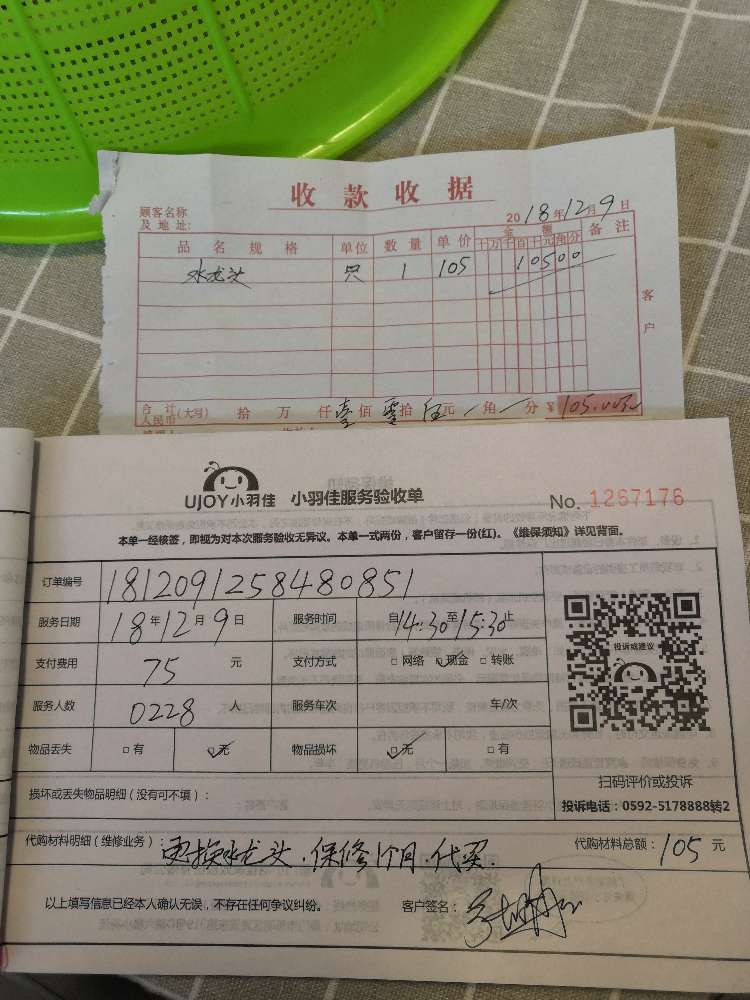 收款收据
顾客名称
及地址:
2018年12月9日
品名规格 单位 数量 单价 金额 备注
十万千百十元角分
水龙头 只 1 105 10500
客户
合计
人民币(大写) 拾 万 仟壹佰零拾伍元 角 分 ¥105.00元
UJOY小羽佳 小羽佳服务验收单 No. 1267176
本单一经核签，即视为对本次服务验收无异议。本单一式两份，客户留存一份(红)。《维保须知》详见背面。
订单编号 1812091258480851
服务日期 18年12月9日 服务时间 自14:30至15:30止
支付费用 75 元 支付方式 □网络 ☑现金 □转账
服务人数 0228 人 服务车次 车/次
物品丢失 □有 ☑无 物品损坏 ☑无 □有
投诉或建议
扫码评价或投诉
投诉电话：0592-5178888转2
损坏或丢失物品明细（没有可不填）：
代购材料明细（维修业务）：更换水龙头.保修1个月.代买. 代购材料总额：105元
以上填写信息已经本人确认无误，不存在任何争议纠纷。 客户签名：